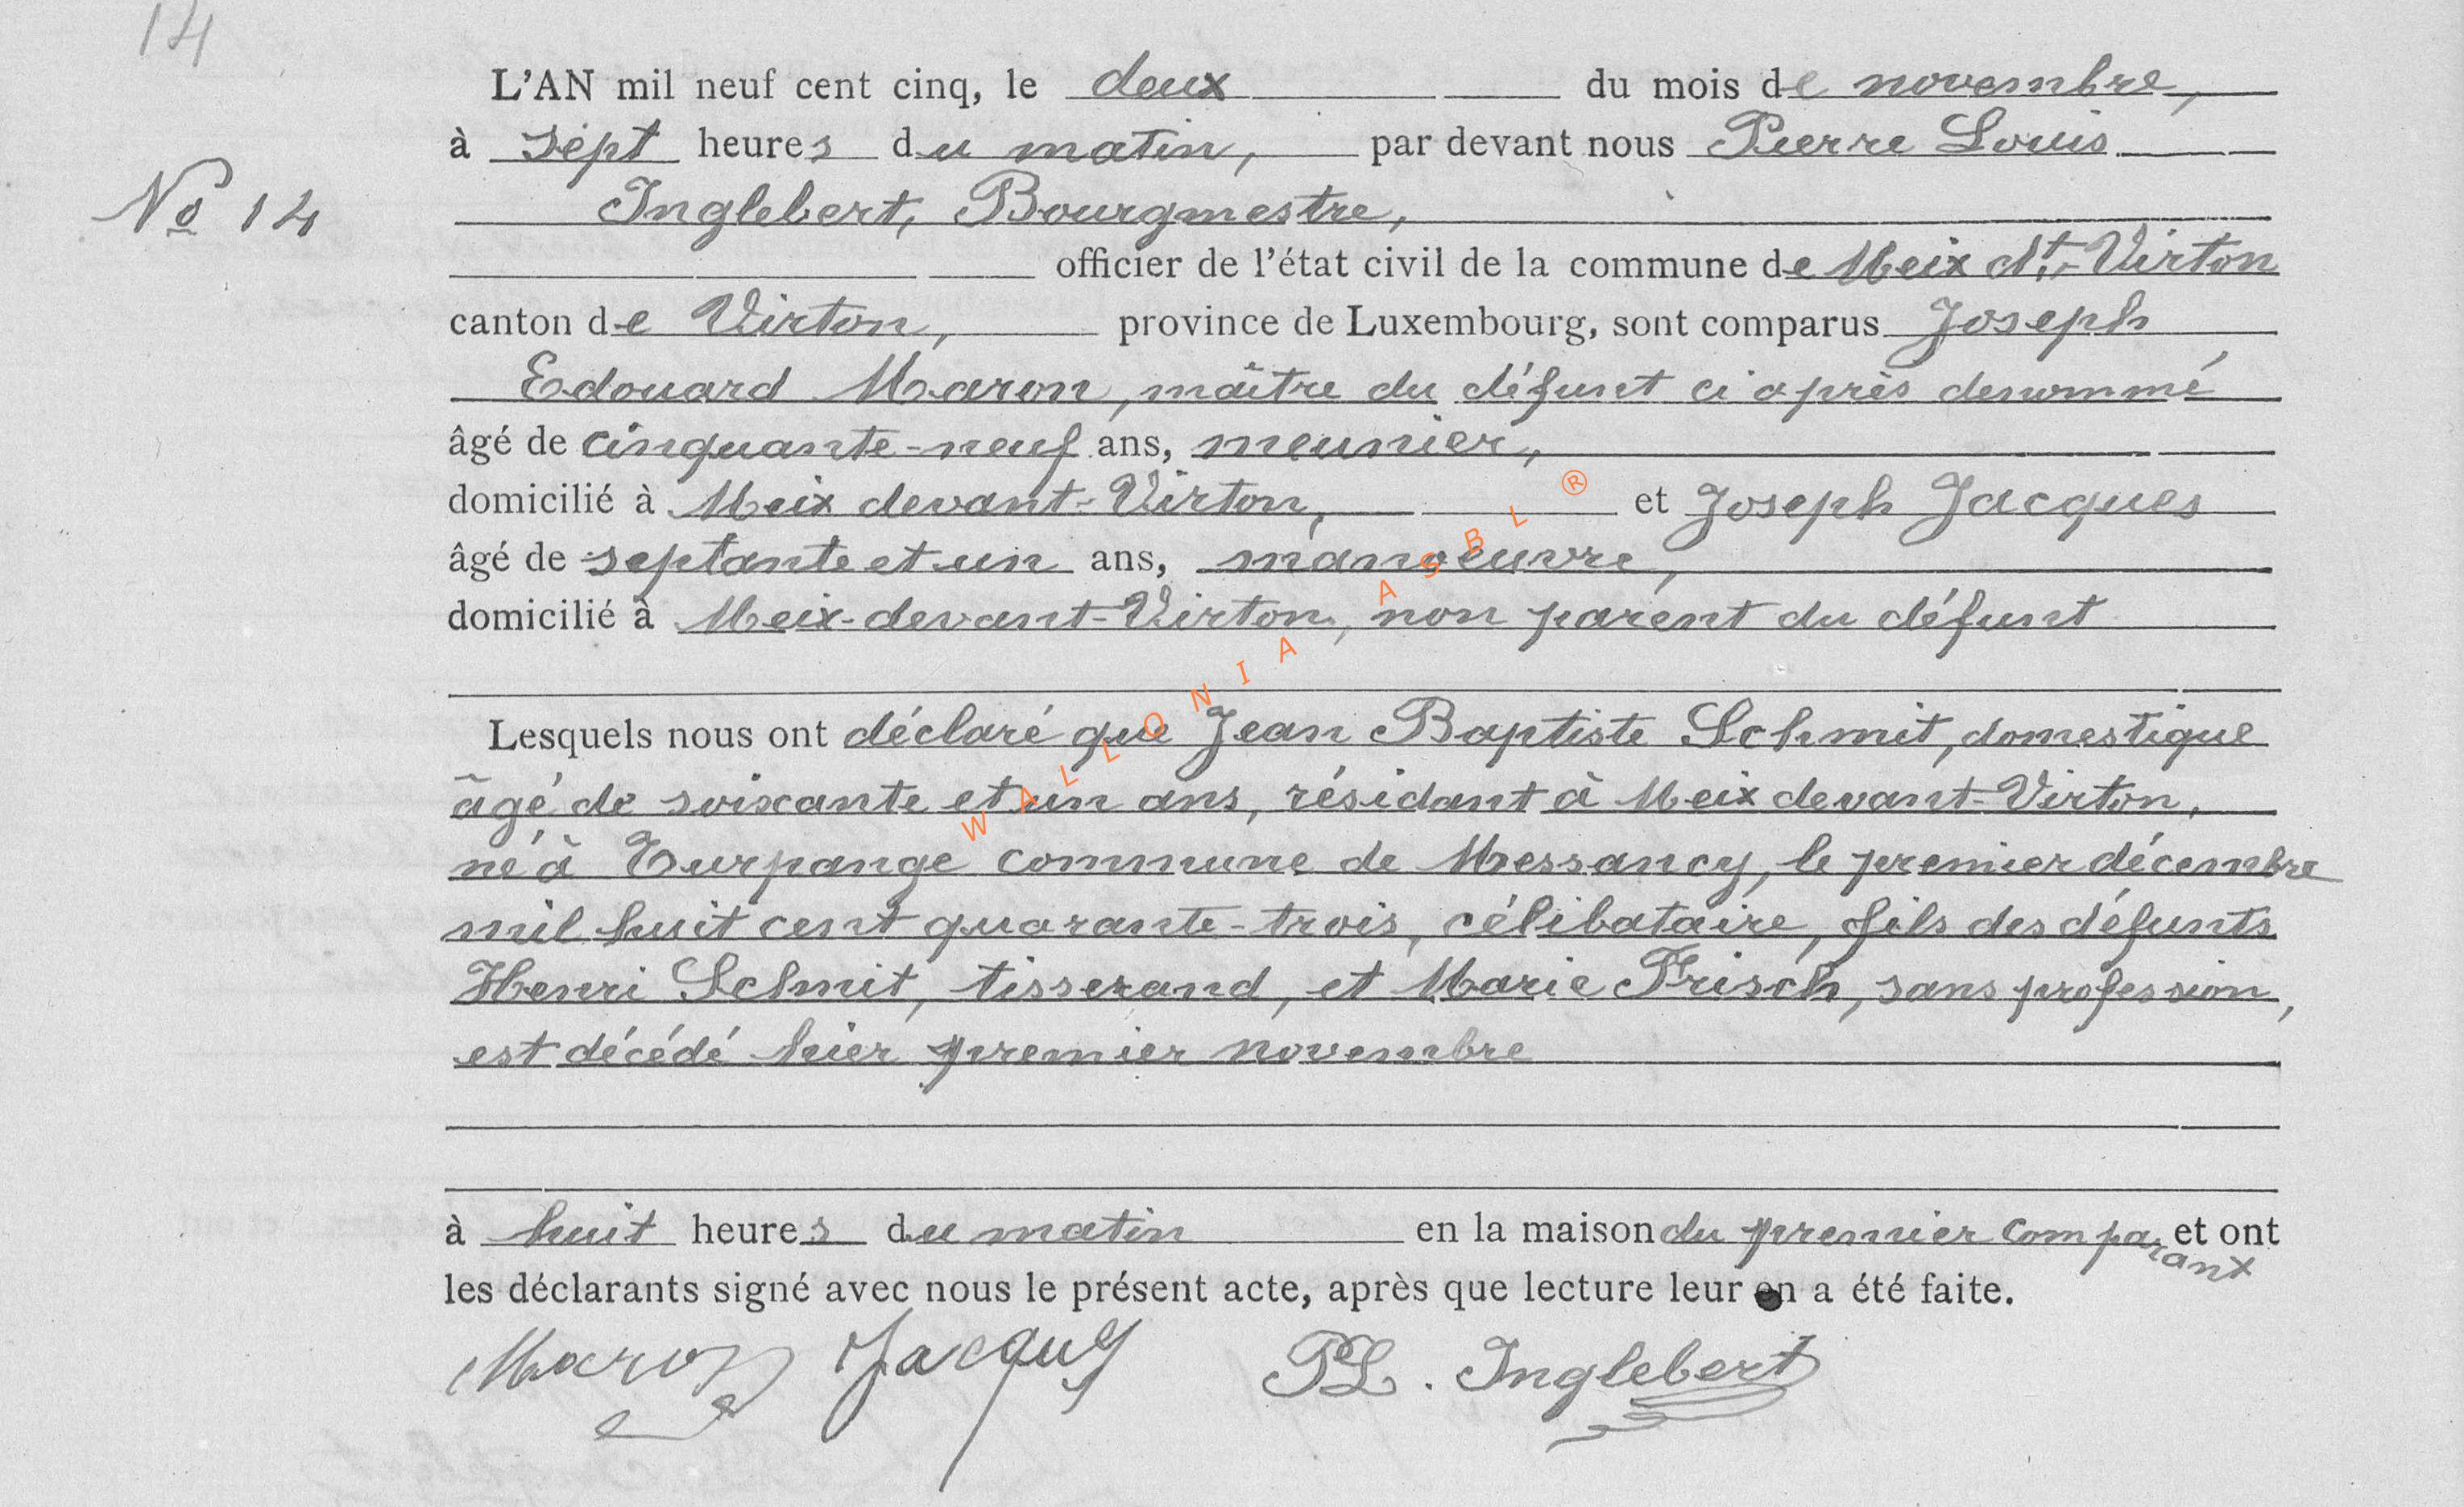 14
L'AN mil neuf cent cinq, le deux du mois de novembre,
à sept heures du matin, par devant nous Pierre Louis
No 14
Inglebert, Bourgmestre,
officier de l'état civil de la commune de Meix dt-Virton
canton de Virton, province de Luxembourg, sont comparus Joseph
Edouard Maron, maître du défunt ci après denommé
âgé de cinquante-neuf ans, meunier,
domicilié à Meix devant-Virton, et Joseph Jacques
âgé de septante et un ans, manoeuvre,
domicilié à Meix-devant-Virton, non parent du défunt
Lesquels nous ont déclaré que Jean Baptiste Schmit, domestique
âgé de soixante et un ans, résidant à Meix devant-Virton,
né à Turpange commune de Messancy, le premier décembre
mil huit cent quarante-trois, célibataire, fils des défunts
Henri Schmit, tisserand, et Marie Frisch, sans profession,
est décédé hier premier novembre
à huit heures du matin en la maison du premier comparant et ont
les déclarants signé avec nous le présent acte, après que lecture leur en a été faite.
Maron Jacques PL. Inglebert
WALLONIA ASBL ®